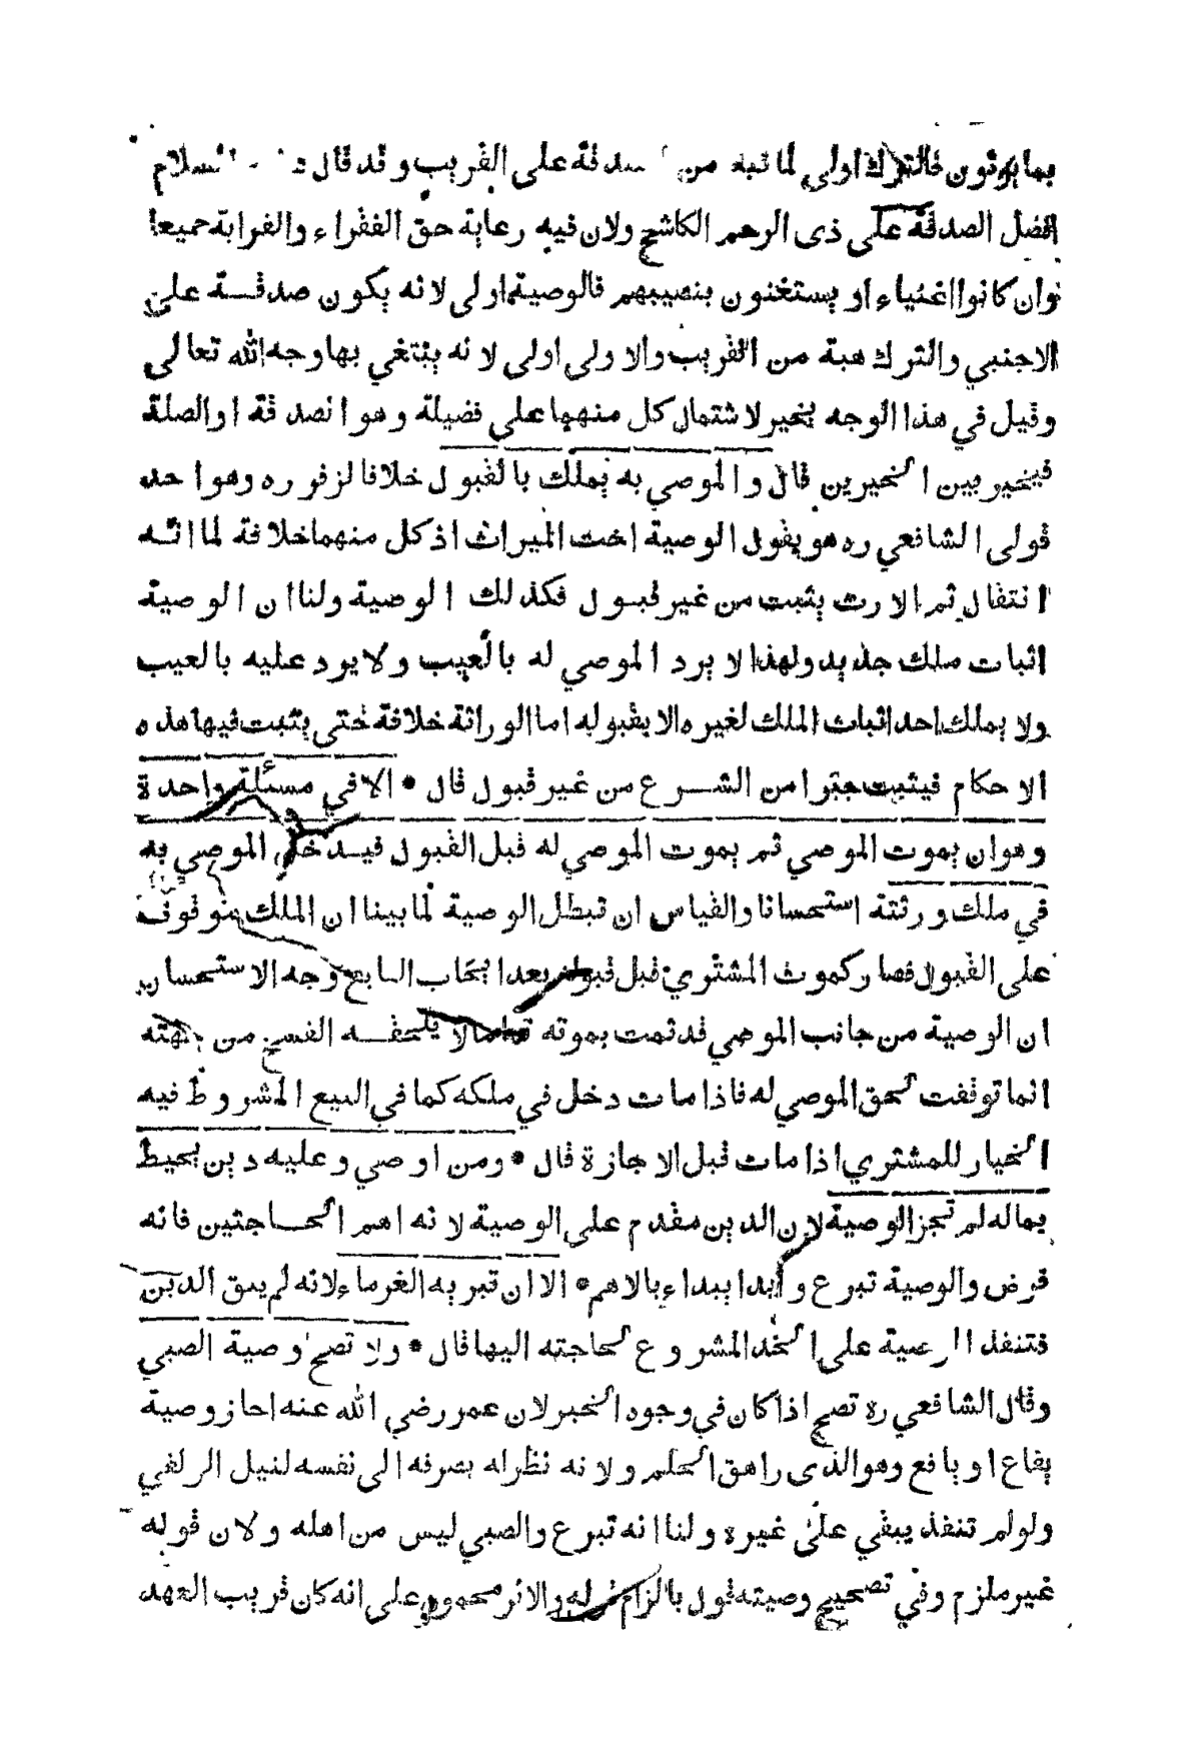 بما يرثون فالترك اولى لما فيه من الصدقة على القريب وقد قال السلام
افضل الصدقة على ذى الرحم الكاشح ولان فيه رعاية حق الفقراء والقرابة جميعا
وان كانوا اغنياء او يستغنون بنصيبهم فالوصية اولى لانه يكون صدقة على
الاجنبي والترك هبة من القريب والاولى اولى لانه يبتغي بها وجه الله تعالى
وقيل في هذا الوجه يخير لاشتمال كل منهما على فضيلة وهو الصدقة او الصلة
فيخير بين الخيرين قال والموصي به يملك بالقبول خلافا لزفر ره وهو احد
قولى الشافعي ره هو يقول الوصية اخت الميراث اذ كل منهما خلافة لما انه
انتقال ثم الارث يثبت من غير قبول فكذلك الوصية ولنا ان الوصية
اثبات ملك جديد ولهذا لا يرد الموصي له بالعيب ولا يرد عليه بالعيب
ولا يملك احد اثبات الملك لغيره الا بقبوله اما الوراثة خلافة حتى يثبت فيها هذه
الاحكام فيثبت جبرا من الشرع من غير قبول قال • الا في مسئلة واحدة
وهو ان يموت الموصي ثم يموت الموصي له قبل القبول فيدخل الموصي به
في ملك ورثته استحسانا والقياس ان تبطل الوصية لما بينا ان الملك موقوف
على القبول فصار كموت المشتري قبل قبوله بعد ايجاب البايع وجه الاستحسان
ان الوصية من جانب الموصي قد تمت بموته تماما لا يلحقه الفسخ من جهته
انما توقفت لحق الموصي له فاذا مات دخل في ملكه كما في البيع المشروط فيه
الخيار للمشتري اذا مات قبل الاجازة قال • ومن اوصي وعليه دين يحيط
بماله لم تجز الوصية لان الدين مقدم على الوصية لانه اهم الحاجتين فانه
فرض والوصية تبرع وابدا يبداء بالاهم • الا ان تبريه الغرماء لانه لم يبق الدين
فتنفذ الوصية على الحد المشروع لحاجته اليها قال • ولا تصح وصية الصبي
وقال الشافعي ره تصح اذا كان في وجوه الخير لان عمر رضي الله عنه اجاز وصية
يفاع او يافع وهو الذى راهق الحلم ولانه نظر له بصرفه الى نفسه لنيل الزلفي
ولو لم تنفذ يبقي على غيره ولنا انه تبرع والصبي ليس من اهله ولان قوله
غير ملزم وفي تصحيح وصيته قول بالزام قوله والاثر محمول على انه كان قريب العهد